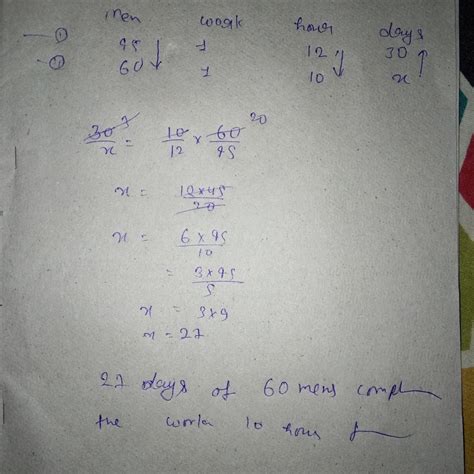 men work hour days
① 45 ↓ 1 12 ↓ 30 ↑
② 60 1 10 x
30/x = 10/12 × 60/45 20
x = 12×45/20
x = 6×45/10
= 3×45/5
x = 3×9
x = 27
27 days of 60 mens
the work 10 hour